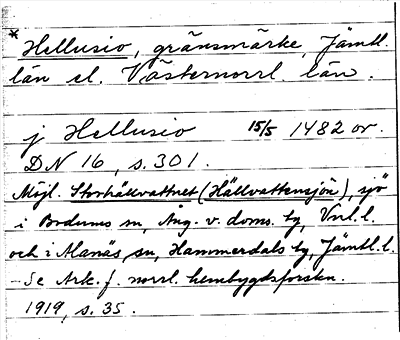 * Hellusio, gränsmärke, Jämtl.
län el. Västernorrl. län.
j Hellusio 15/5 1482 or.
DN 16, s. 301.
Möjl. Storhällvattnet (Hällvattensjön), sjö
i Bodums sn, Ång. v. doms. hg, Vnl. l.
och i Alanäs sn, Hammerdals hg, Jämtl. l.
– Se Ark. f. norrl. hembygdsforskn.
1919, s. 35.